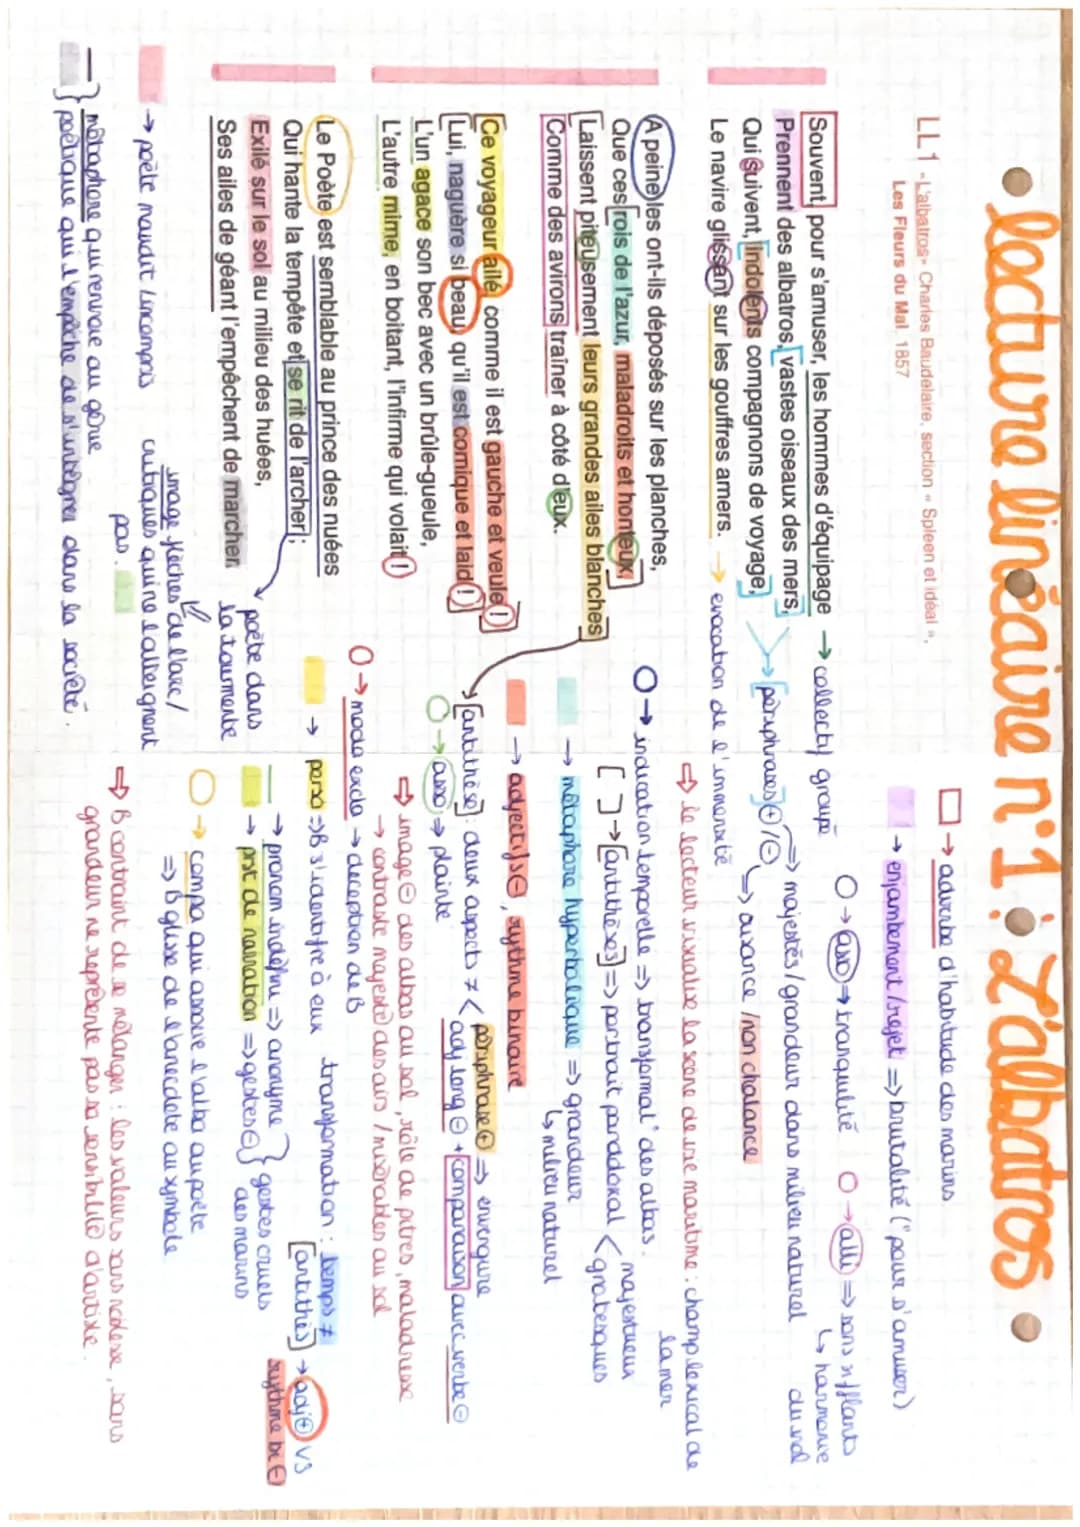 • lecture linéaire n°1 : L'albatros •
LL 1 - « L'albatros » Charles Baudelaire, section « Spleen et idéal »,
Les Fleurs du Mal, 1857
□ → adverbe d'habitude des marins
→ enjambement / rejet => brutalité (" pour s'amuser)
Souvent, pour s'amuser, les hommes d'équipage → collectif groupe
Prennent des albatros, vastes oiseaux des mers,
Qui suivent, indolents compagnons de voyage,
Le navire glissant sur les gouffres amers. → évocation de l'immensité
○ → asso → tranquilité ○ → alli => sons sifflants
↳ harmonie du vol
[périphrases] ⊕/⊖
=> majestés / grandeur dans milieu naturel
=> aisance / non chalance
⇨ le lecteur visualise la scène de vie maritime : champ lexical de la mer
A peine les ont-ils déposés sur les planches,
Que ces rois de l'azur, maladroits et honteux,
Laissent piteusement leurs grandes ailes blanches
Comme des avirons traîner à côté d'eux.
○ → indication temporelle => transformat° des albas.
[ ] → [antithèse] => portrait paradoxal < majestueux
grotesques
→ métaphore hyperbolique => grandeur
↳ milieu naturel
→ adjectifs ⊖, rythme binaire
[antithèse] : deux aspects ≠ < périphrase ⊕ => envergure
adj long ⊖ + comparaison avec verbe ⊖
○ → asso → plainte
⇨ image ⊖ des albas au sol, rôle de pitres, maladresse
→ contraste majesté des airs / misérables au sol
Ce voyageur ailé, comme il est gauche et veule !
Lui, naguère si beau, qu'il est comique et laid !
L'un agace son bec avec un brûle-gueule,
L'autre mime, en boitant, l'infirme qui volait !
○ → moda excla → déception de B
→ perso => B s'identifie à eux
transformation : temps ≠
[antithès] → adj ⊕ vs
rythme bi ⊖
→ pronom indéfini => anonyme
→ pst de narration => gestes ⊖ } gestes cruels
des marins
Le Poète est semblable au prince des nuées
Qui hante la tempête et se rit de l'archer ;
Exilé sur le sol au milieu des huées,
Ses ailes de géant l'empêchent de marcher.
poète dans
la tourmente
○ → compa qui associe l'alba au poète
=> B glisse de l'anecdote au symbole
image flèches de l'arc /
critiques qui ne l'atteignent
pas.
→ poète maudit / incompris
— } métaphore qui renvoie au génie
poétique qui l'empêche de s'intégrer dans la société.
⇨ B contraint de se mélanger : les valeurs sans noblesse, sans
grandeur ne représente pas sa sensibilité d'artiste.